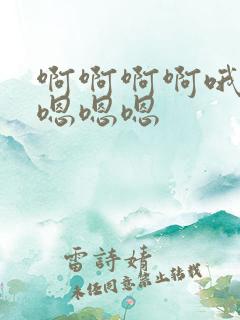 啊啊啊啊哦
嗯嗯嗯
雷詩婧
未经同意禁止转载